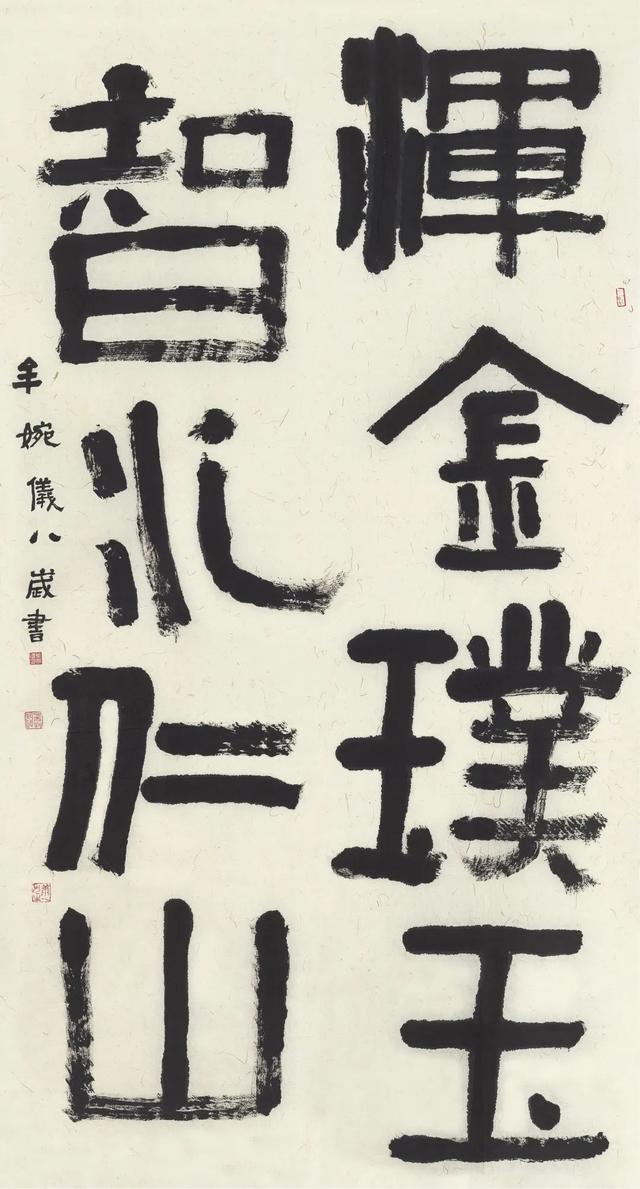 渾金璞玉
智水仁山
年婉儀八歲書